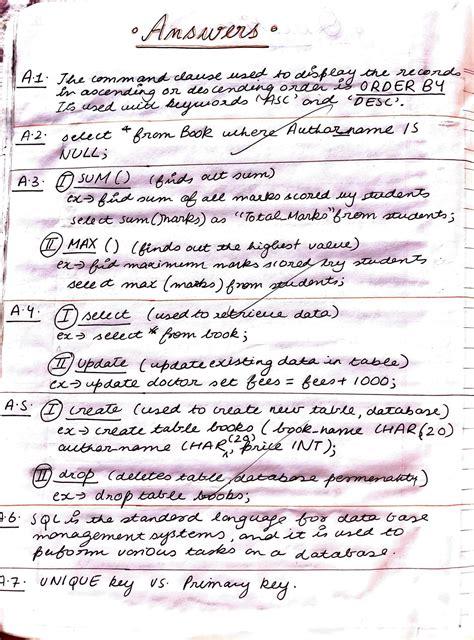 • Answers •
A.1. The command clause used to display the records
in ascending or descending order is ORDER BY
Its used with keywords 'ASC' and 'DESC'.
A.2. select * from Book where Author_name IS
NULL;
A.3. I SUM() (finds out sum)
ex→ find sum of all marks scored by students
select sum(marks) as "Total Marks" from students;
II MAX () (finds out the highest value)
ex→ find maximum marks scored by students
select max (marks) from students;
A.4. I select (used to retrieve data)
ex→ select * from book;
II update (update existing data in table)
ex→ update doctor set fees = fees + 1000;
A.5. I create (used to create new table, database)
ex→ create table books (book_name CHAR(20)
author_name CHAR(20), price INT);
II drop (deletes table, database permenately)
ex→ drop table books;
A.6. SQL is the standard language for data base
management systems, and it is used to
perform various tasks on a database.
A.7. UNIQUE key vs. Primary key.